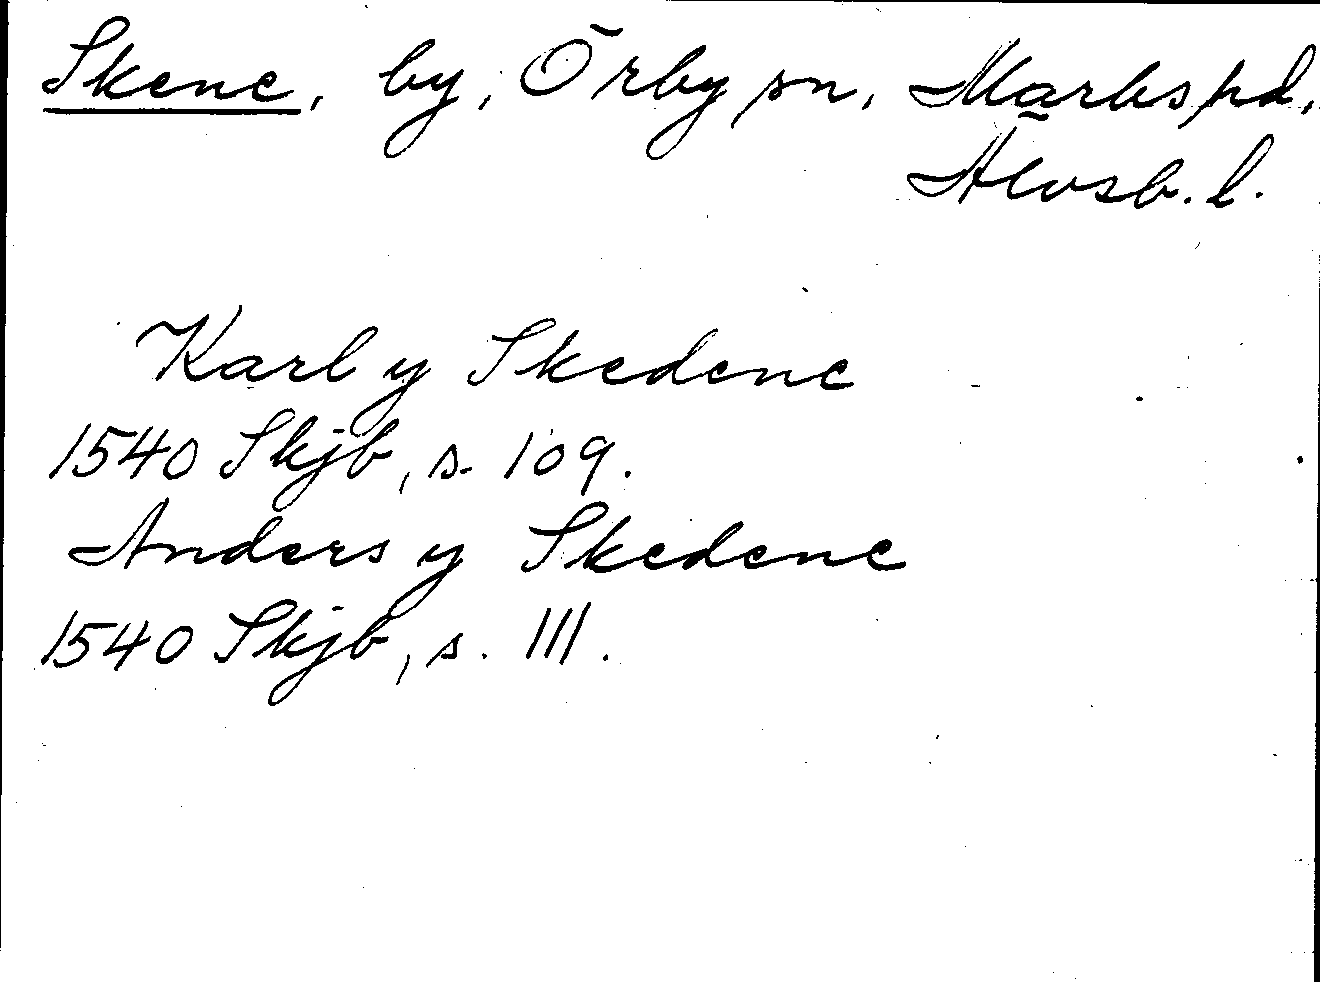 Skene, by, Örby sn, Marks hd,
Älvsb. l.
Karl y Skedene
1540 Skjb, s. 109.
Anders y Skedene
1540 Skjb, s. 111.